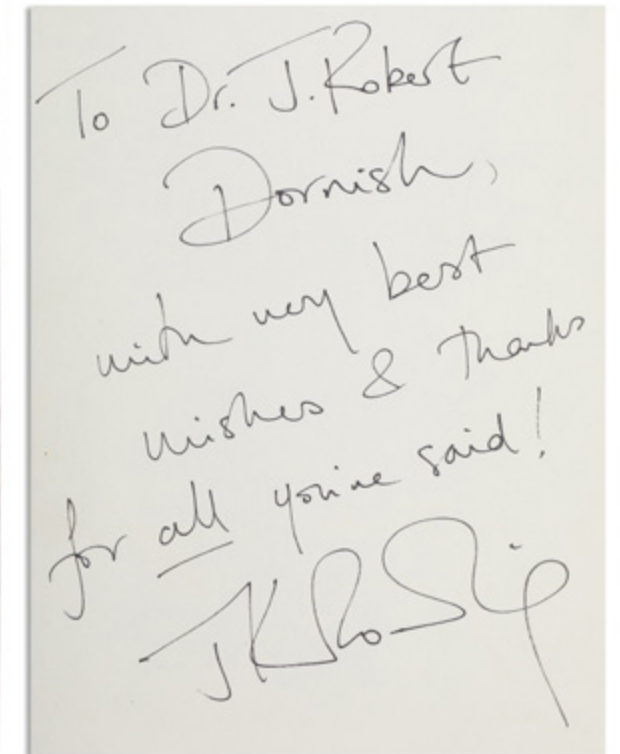 To Dr. J. Robert
Dornish,
with very best
wishes & thanks
for all you've said!
JKRowling